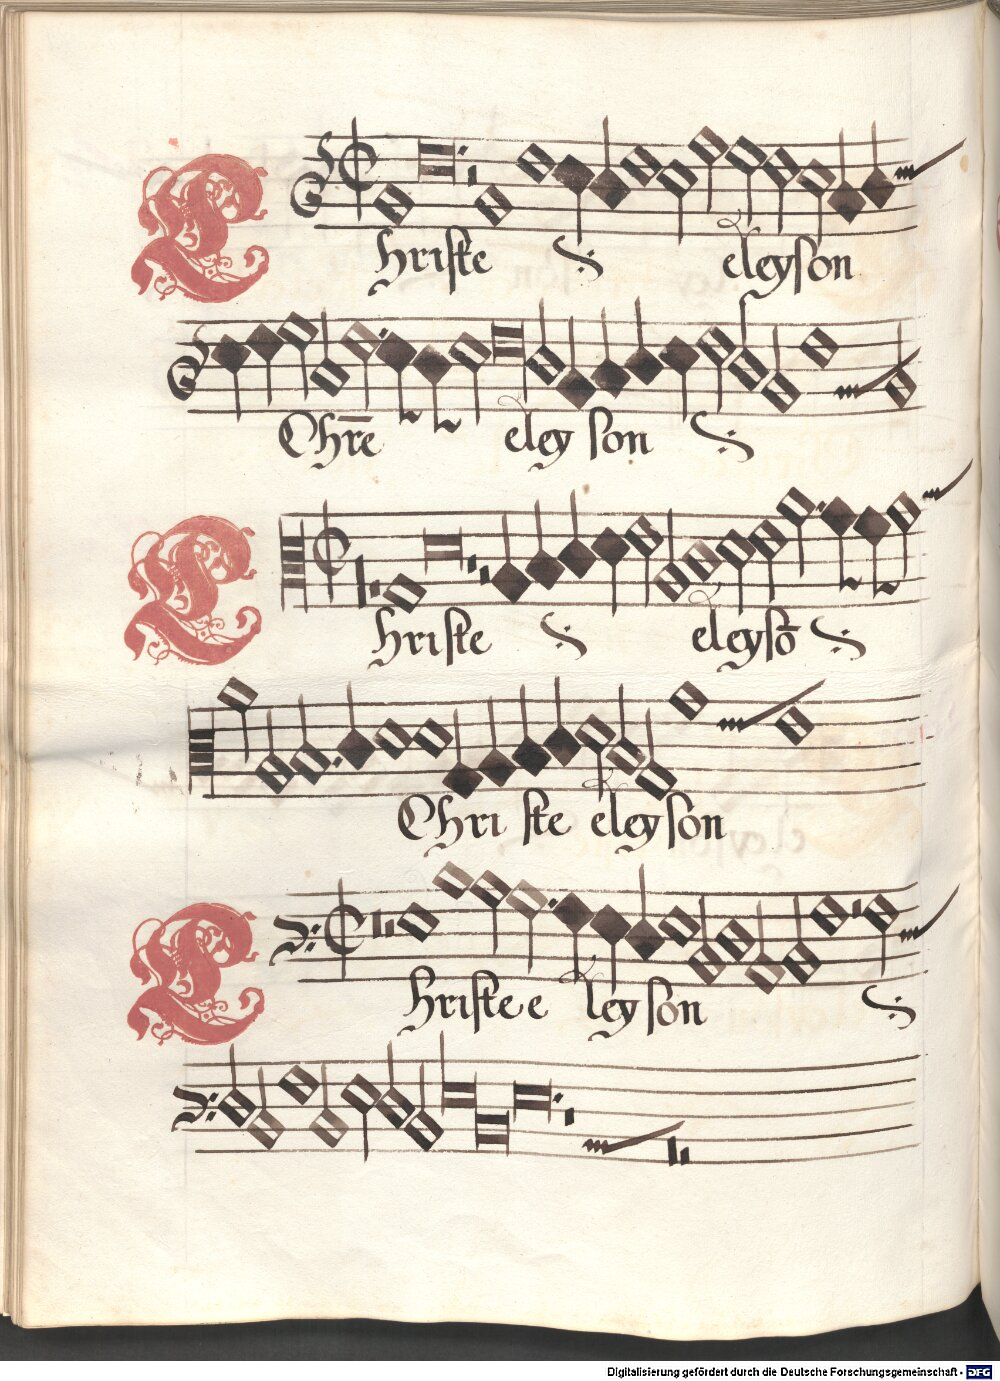 Christe eleyson
Chr̄e eley son
Christe eleysō
Chri ste eleyson
Christe e leyson
Digitalisierung gefördert durch die Deutsche Forschungsgemeinschaft - DFG